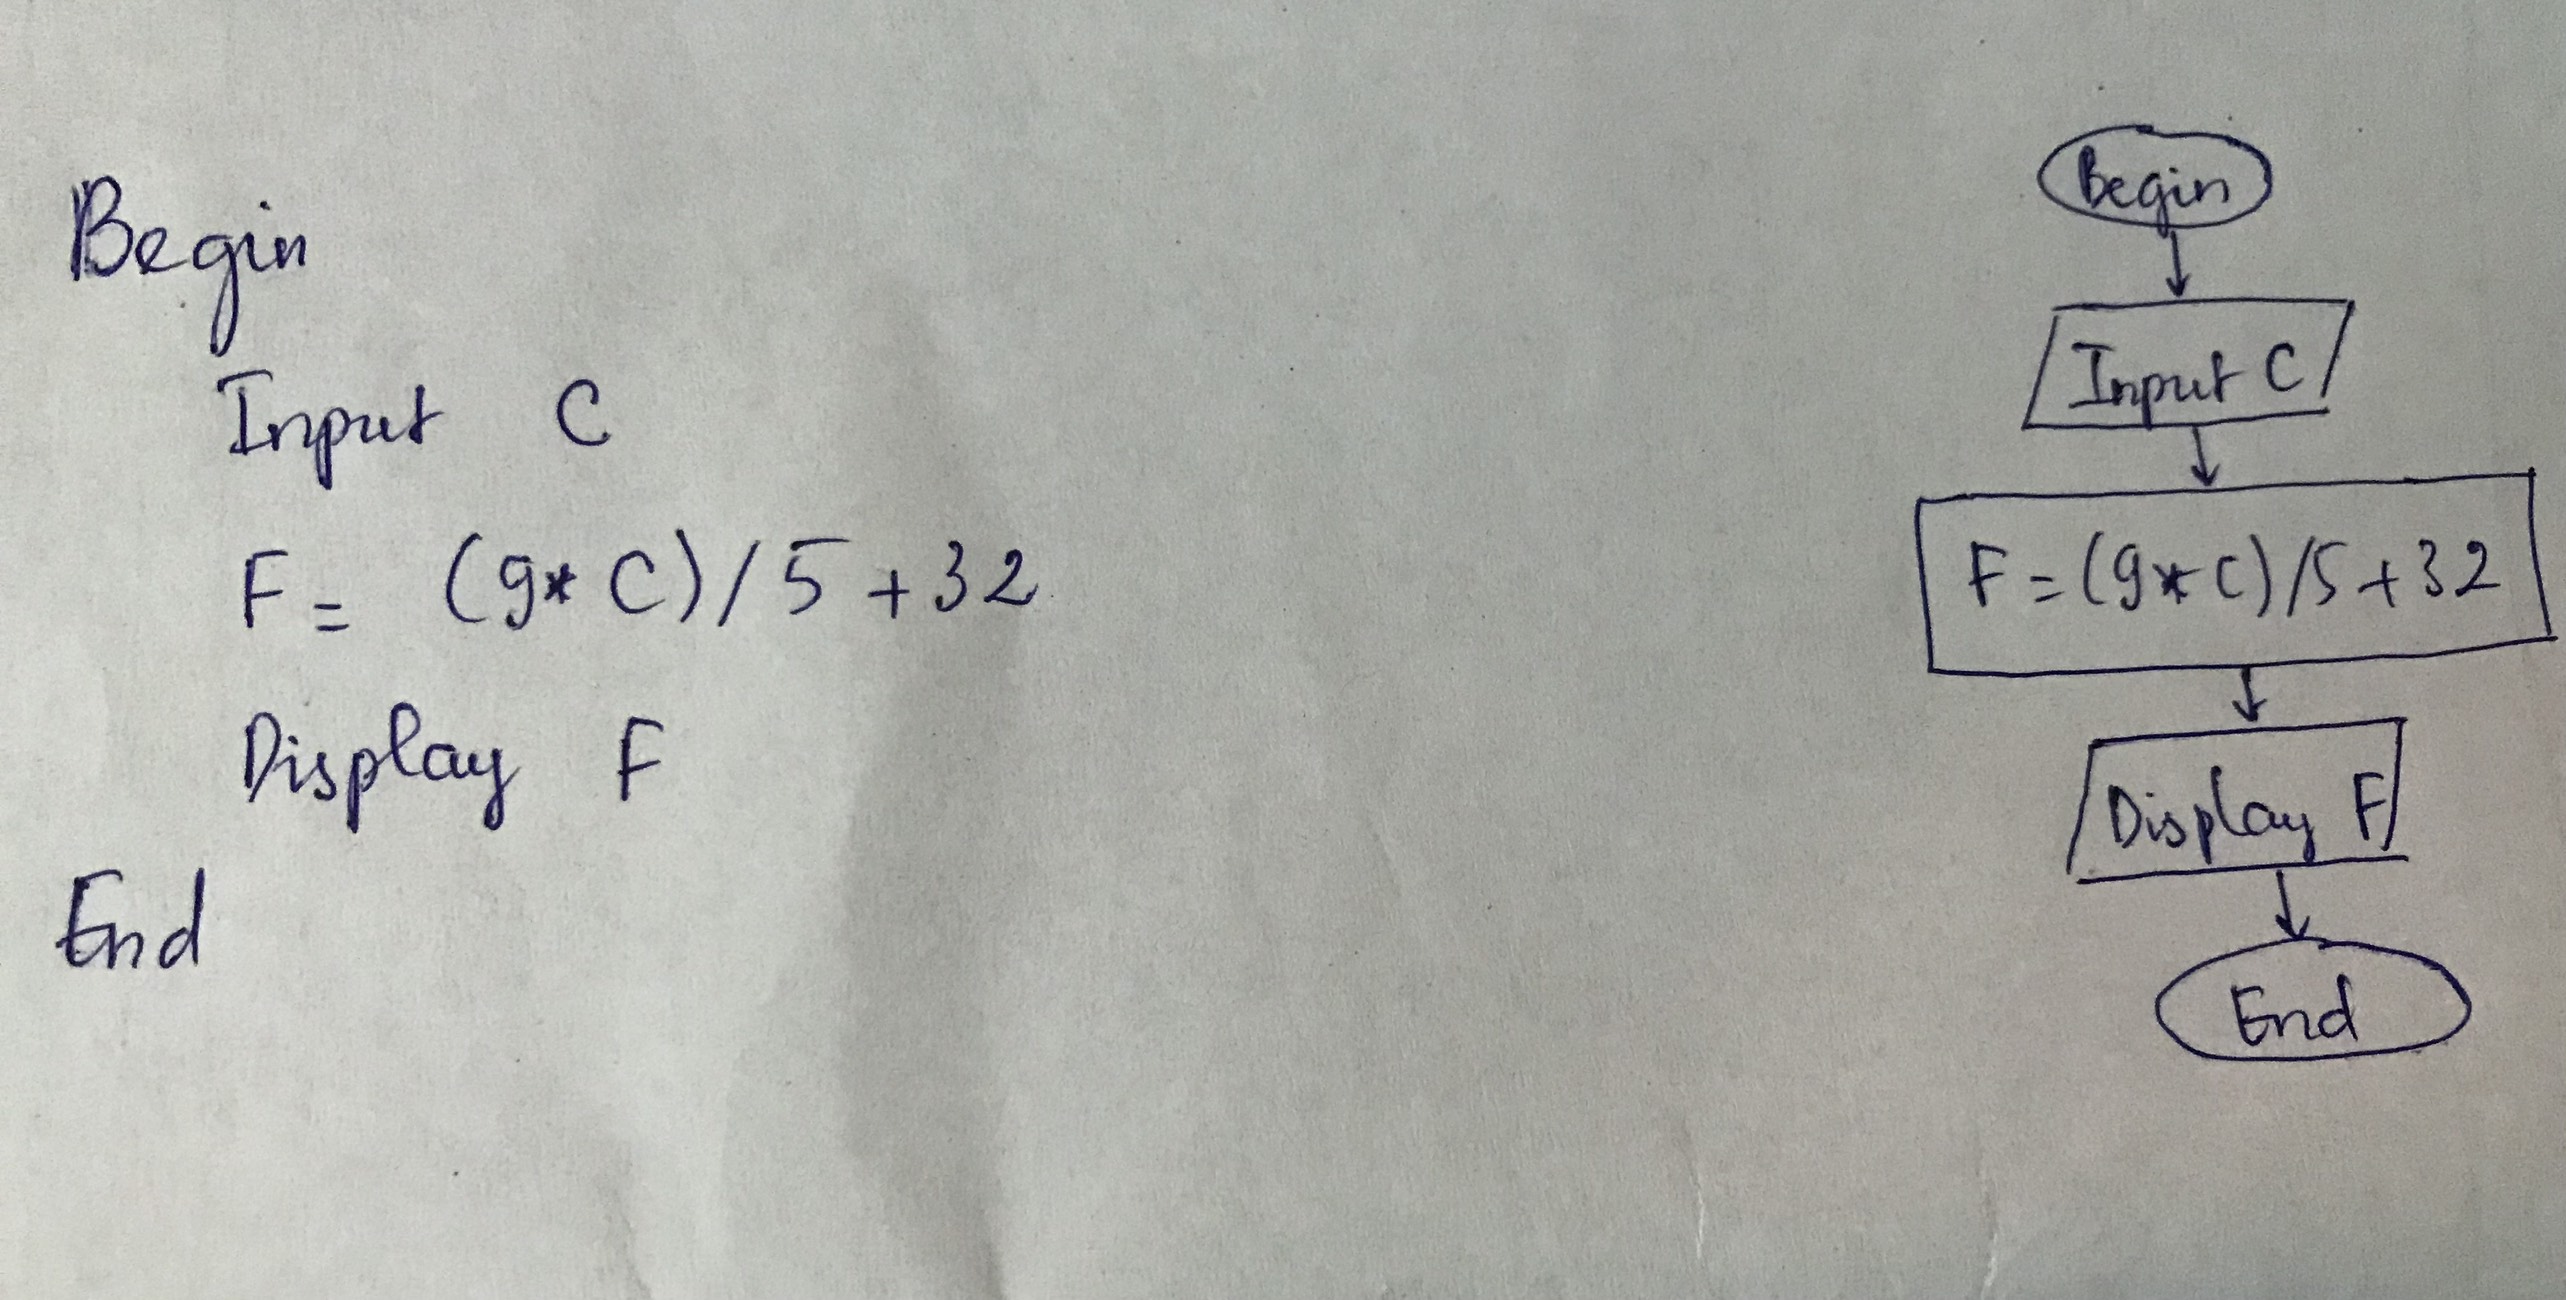 Begin
Input C
F = (9* C) / 5 + 32
Display F
End
Begin
Input C
F = (9* C) /5+32
Display F
End